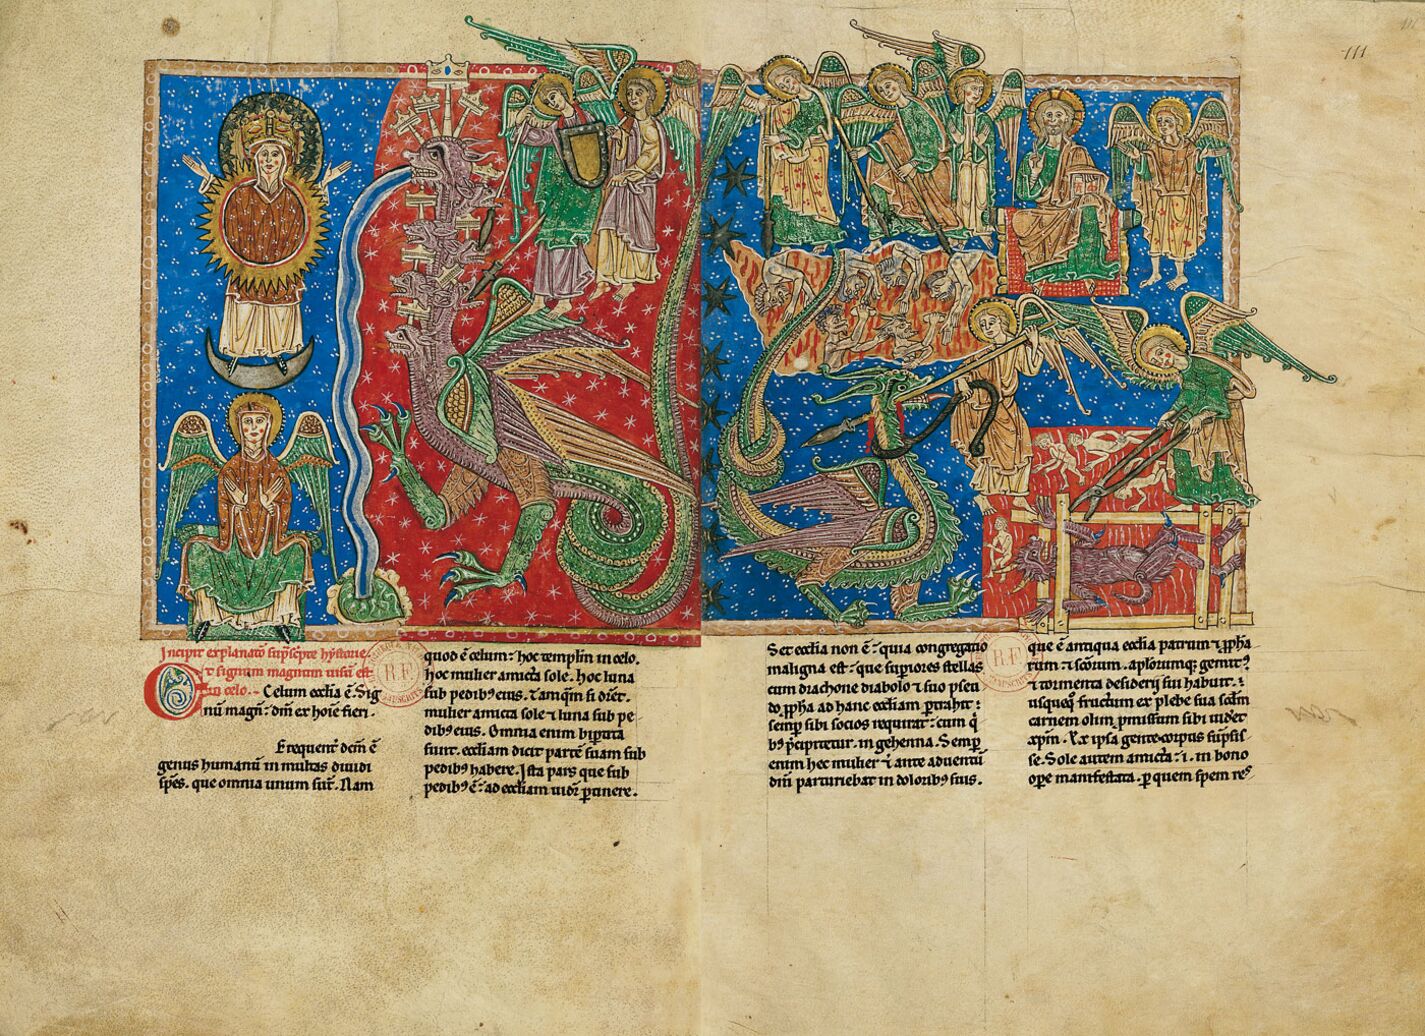 111
Incipit explanatō sup̄sc̄pte hystorie.
Et signum magnum uisū est
in celo. Celum ecclīa ē. Sig
nū magn̄: dm̄ ex hoīe fieri.
Frequent̄ dem̄ ē
genus humanū in multas diuidi
sp̄es. que omnia unum sūt. Nam
quod ē celum: hoc templm̄ in celo.
hoc mulier amicta sole. hoc luna
sub pedibꝰ eius. ⁊ amq̄m si dic̄et.
mulier amicta sole ⁊ luna sub pe
dibꝰ eius. Omnia enim bip̄tita
fuīt. eccl̄iam dicit partē suam sub
pedibꝰ habere. Ista pars que sub
pedibꝰ ē: ad eccl̄iam uidr̄ p̱tinere.
Set eccl̄ia non ē: quia congregatio
maligna est: que sup̄iores stellas
cum drachone diabolo ⁊ suo pseu
do p̄pha ad hanc eccl̄iam p̱trahit:
semp̱ sibi socios requirat: cum q̇
bꝰ p̄cipitetur. in gehenna. Semp̱
enim hec mulier ⁊ ante aduentū
dn̄i parturiebat in doloribꝰ suis.
que ē antiqua eccl̄ia patrum ⁊ p̄pha
rum: ⁊ sc̄orum. ap̄lorumqꝫ gemitꝰ
⁊ tormenta desiderij sui habuit.
usqueq̊ fructum ex plebe sua sc̄dm̄
carnem olim p̱missum sibi uidet
xp̄m. Ex ipsa gente corpus sūpsis
se. Sole autem amicta: .i. in bono
ope manifestata. p̱ quem spem res
R.F.
R.F.